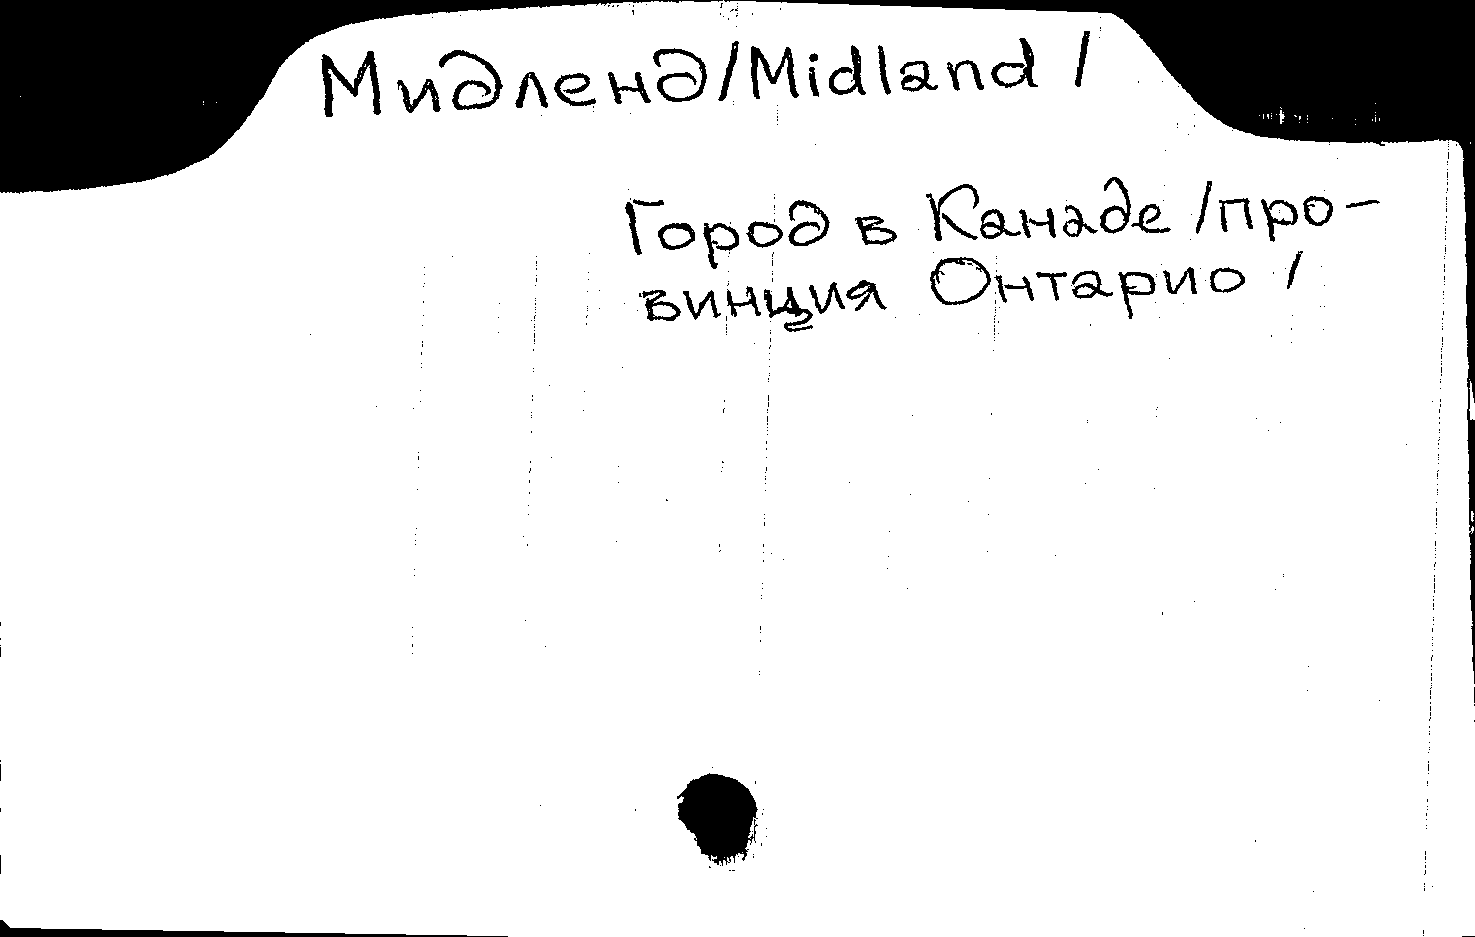 Мидленд/Midland/
Город в Канаде /про-
винция Онтарио/